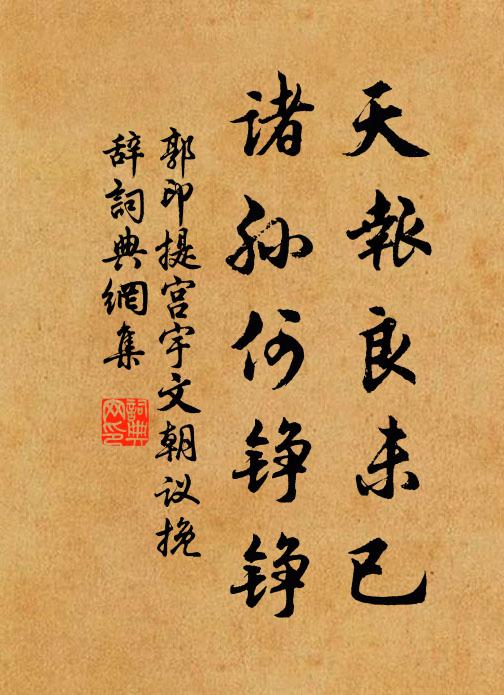 天報良未已
诸孙何铮铮
郭印提宫宇文朝议挽
辞詞典網集
詞典网印